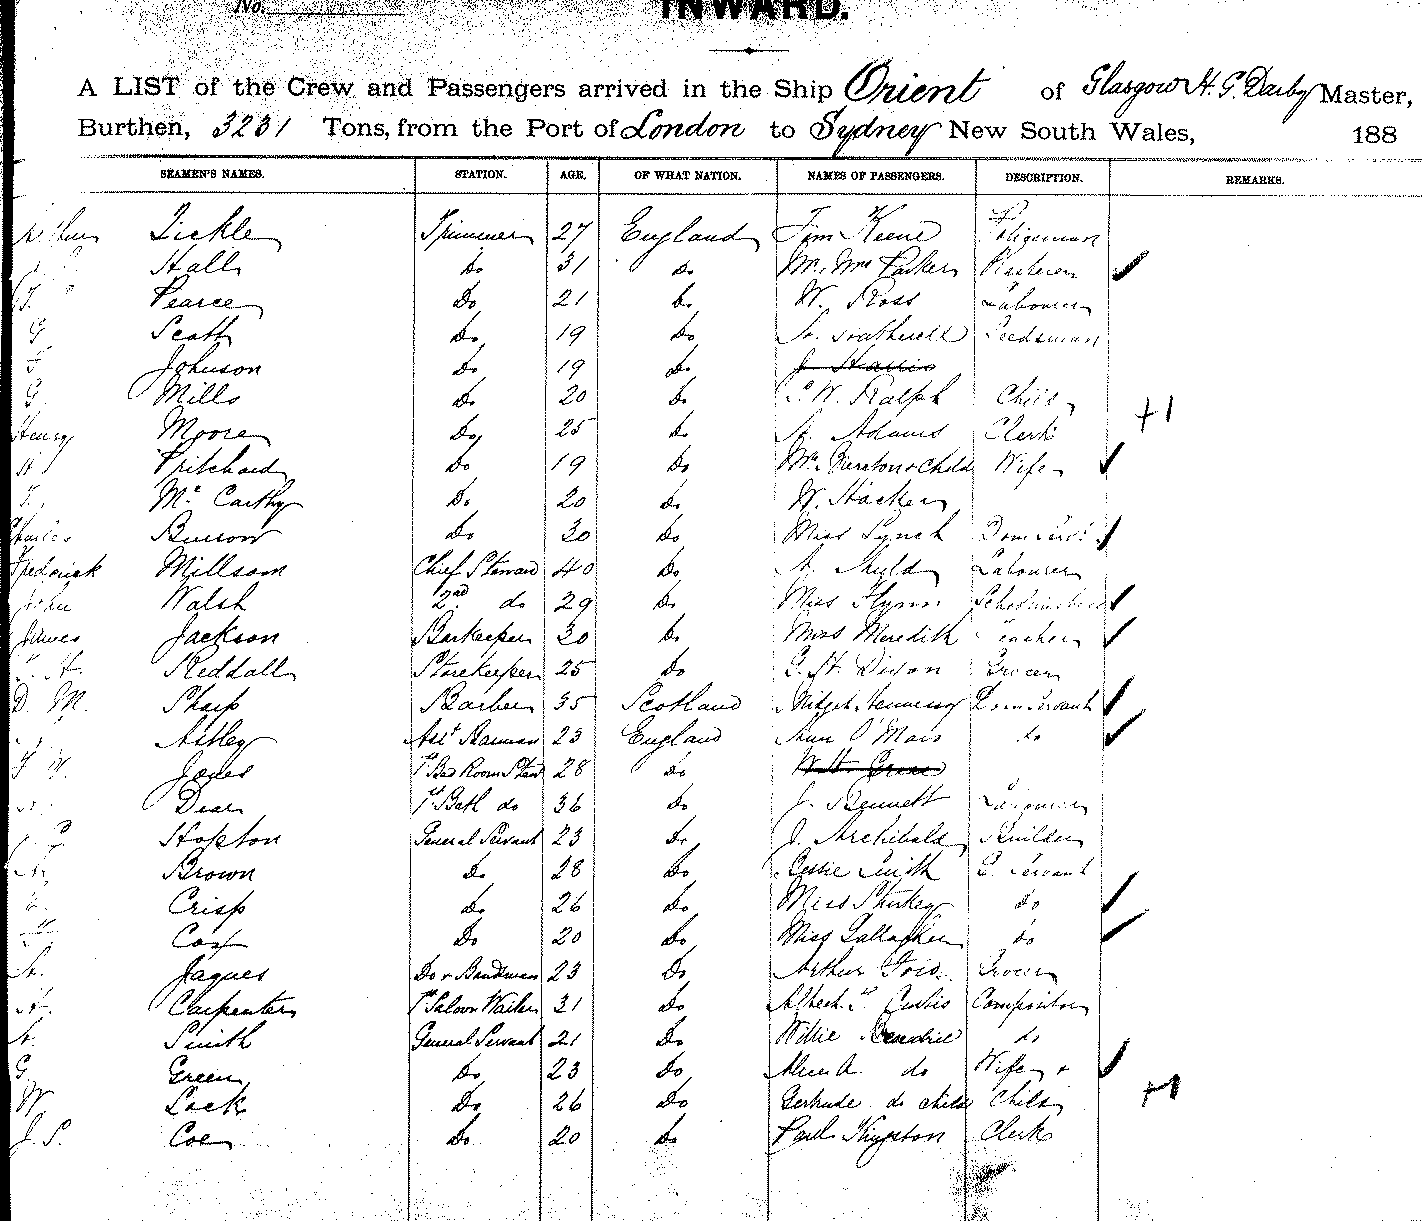 No.
INWARD.
A LIST of the Crew and Passengers arrived in the Ship Orient of Glasgow H. G. Darby Master,
Burthen, 3231 Tons, from the Port of London to Sydney New South Wales, 188
SEAMEN'S NAMES. STATION. AGE. OF WHAT NATION. NAMES OF PASSENGERS. DESCRIPTION. REMARKS.
Arthur Tickle Trimmer 27 England Tim Keene Policeman
Hall Do 31 Do Mr. Wm Parker
T. Pearce Do 21 Do W. Ross Labourer
G Scott Do 19 Do Seedsman
F Johnson Do 19 Do J Harris
G. Mills Do 20 Do W. Ralph Child +1
Henry Moore Do 25 Do A. Adams Clerk
H Pritchard Do 19 Do Child Wife
T. McCarthy Do 20 Do W. Hacker
Charles Do 30 Do Miss Lynch Dom Servt
Frederick Millsom Chief Steward 40 Do Labourer
John Walsh 2nd do 29 Do Miss Flynn
James Jackson Barkeeper 30 Do Miss Meredith Teacher
H. Reddall Storekeeper 25 Do Dixon Grocer
D. M. Sharp Barber 35 Scotland Hennessy Dom Servant
Astley Asst Barman 23 England do
W. Jones 1st Bed Room Stewd 28 Do
Dear 1st Bath do 36 Do J. Bennett Labourer
Hopton General Servant 23 Do J. Archibald Builder
A. Brown Do 28 Do Bessie Smith G. Servant
Crisp do 26 Do Miss do
Cox Do 20 Do Miss Gallagher do
A. Jaques Do & Bandman 23 Do Arthur Ford Grocer
A. Carpenter 1st Saloon Waiter 31 Do Albert Curtis Compositor
A. Smith General Servant 21 Do Willie do
G Green Do 23 Do Alice A. do Wife +
W Lock Do 26 Do Gertrude do child Child +1
J. S. Coe Do 20 Do Paul Kingston Clerk